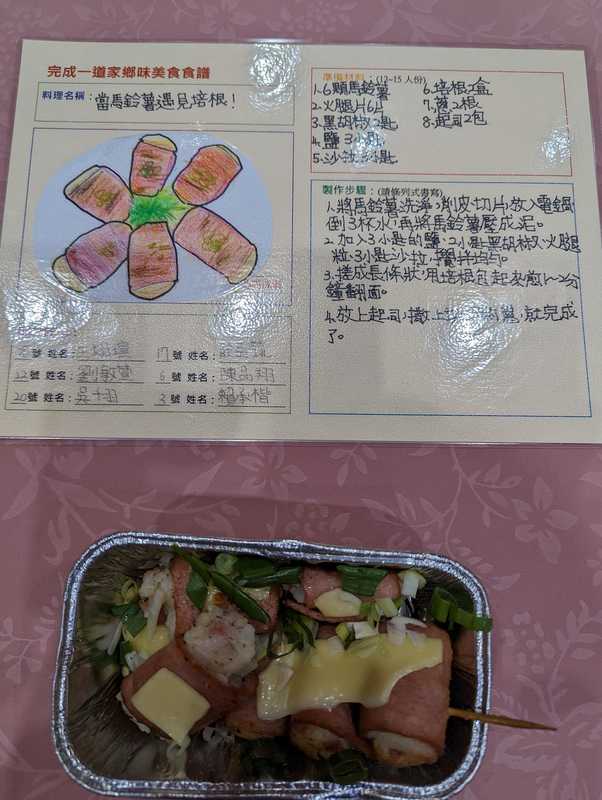 完成一道家鄉味美食食譜
料理名稱：當馬鈴薯遇見培根！
號 姓名：
17號 姓名：
12號 姓名：劉敏萱
6號 姓名：陳品翔
20號 姓名：吳十栩
3號 姓名：賴承楷
準備材料：(12~15人份)
1.6顆馬鈴薯
2.火腿片6片
3.黑胡椒2匙
4.鹽3小匙
5.沙拉3小匙
6.培根2盒
7.蔥2根
8.起司2包
製作步驟：(請條列式書寫)
1.將馬鈴薯洗淨，削皮切片，放入電鍋
倒3杯水，再將馬鈴薯壓成泥。
2.加入3小匙的鹽、2小匙黑胡椒、火腿
粒、3小匙沙拉，攪拌均勻。
3.搓成長條狀，用培根包起來煎1~2分
鐘翻面。
4.放上起司，撒上 蔥，就完成
了。